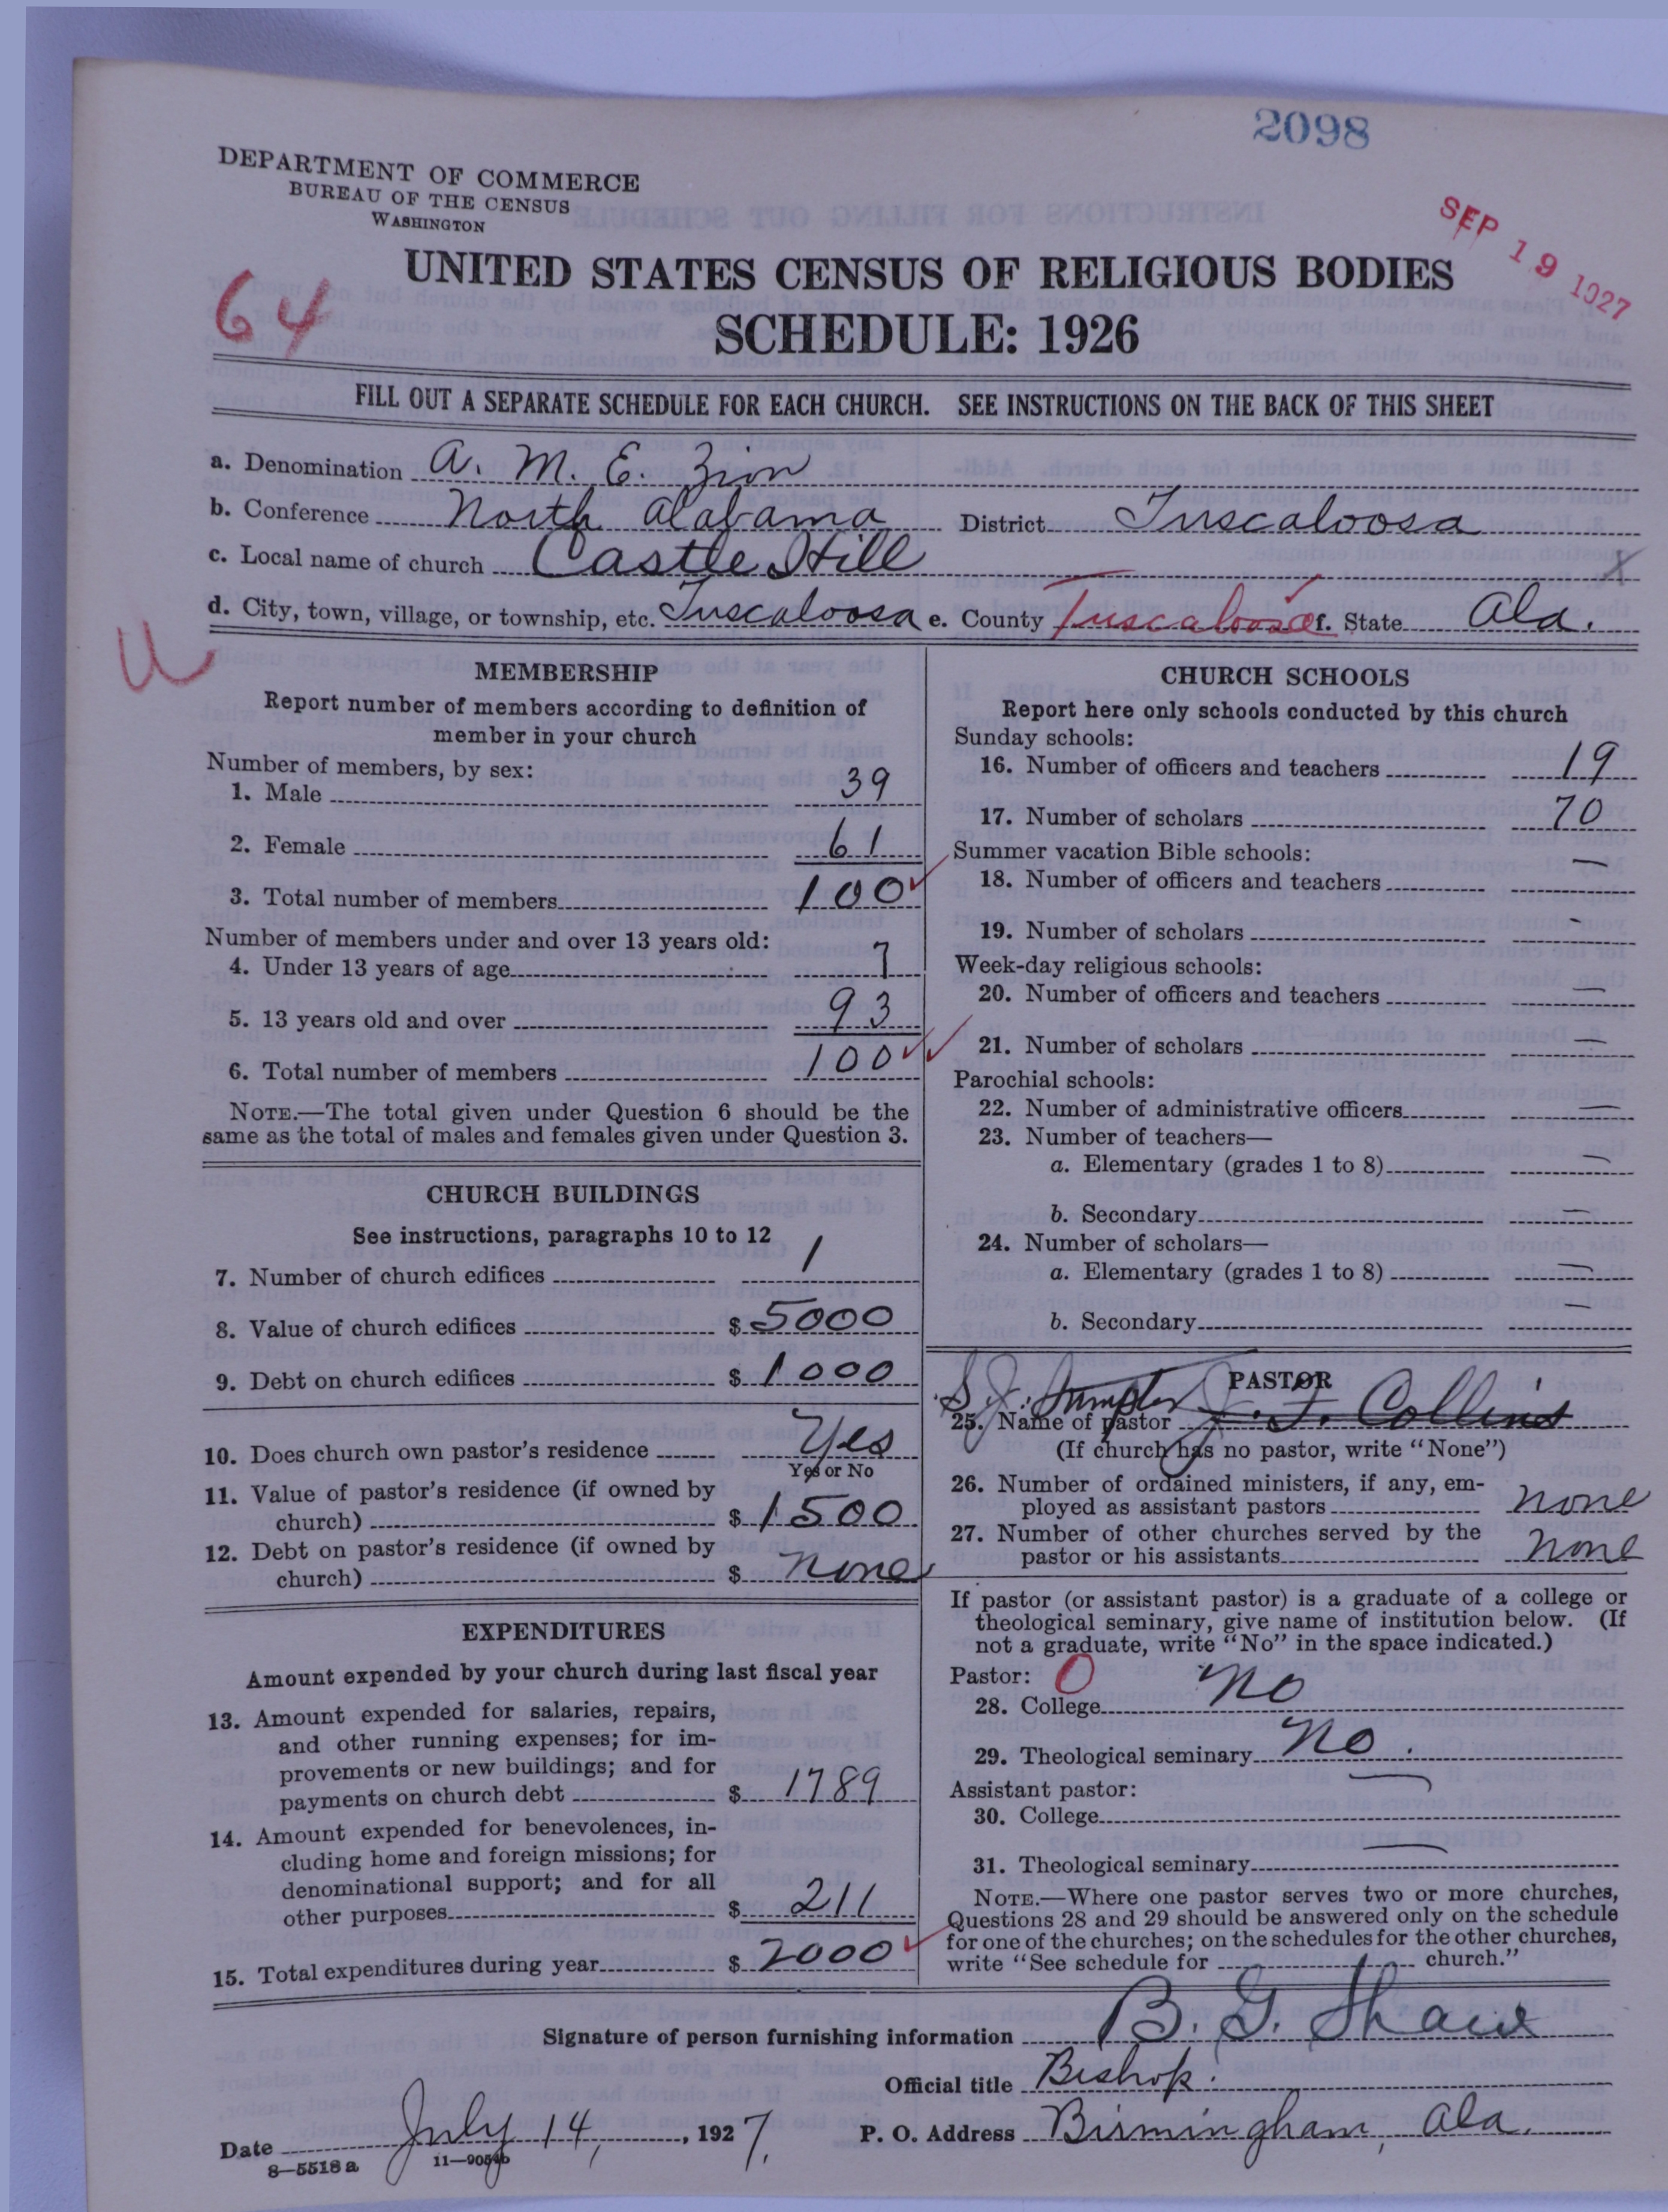 2098
DEPARTMENT OF COMMERCE
BUREAU OF THE CENSUS
WASHINGTON
SEP 19 1927
64
UNITED STATES CENSUS OF RELIGIOUS BODIES
SCHEDULE: 1926
FILL OUT A SEPARATE SCHEDULE FOR EACH CHURCH. SEE INSTRUCTIONS ON THE BACK OF THIS SHEET
a. Denomination A. M. E. Zion
b. Conference North Alabama District Tuscaloosa
c. Local name of church Castle Hill X
d. City, town, village, or township, etc. Tuscaloosa e. County Tuscaloosa f. State Ala.
U
MEMBERSHIP
Report number of members according to definition of
member in your church
Number of members, by sex:
1. Male 39
2. Female 61
3. Total number of members 100
Number of members under and over 13 years old:
4. Under 13 years of age 7
5. 13 years old and over 93
6. Total number of members 100
NOTE.—The total given under Question 6 should be the
same as the total of males and females given under Question 3.
CHURCH BUILDINGS
See instructions, paragraphs 10 to 12
7. Number of church edifices 1
8. Value of church edifices $ 5000
9. Debt on church edifices $ 1000
10. Does church own pastor's residence Yes
Yes or No
11. Value of pastor's residence (if owned by
church) $ 1500
12. Debt on pastor's residence (if owned by
church) $ none
EXPENDITURES
Amount expended by your church during last fiscal year
13. Amount expended for salaries, repairs,
and other running expenses; for im-
provements or new buildings; and for
payments on church debt $ 1789
14. Amount expended for benevolences, in-
cluding home and foreign missions; for
denominational support; and for all
other purposes $ 211
15. Total expenditures during year $ 2000
CHURCH SCHOOLS
Report here only schools conducted by this church
Sunday schools:
16. Number of officers and teachers 19
17. Number of scholars 70
Summer vacation Bible schools:
18. Number of officers and teachers —
19. Number of scholars -
Week-day religious schools:
20. Number of officers and teachers —
21. Number of scholars —
Parochial schools:
22. Number of administrative officers —
23. Number of teachers—
a. Elementary (grades 1 to 8) —
b. Secondary —
24. Number of scholars—
a. Elementary (grades 1 to 8) —
b. Secondary —
PASTOR
25. Name of pastor S. J. J. F. Collins
(If church has no pastor, write "None")
26. Number of ordained ministers, if any, em-
ployed as assistant pastors none
27. Number of other churches served by the
pastor or his assistants none
If pastor (or assistant pastor) is a graduate of a college or
theological seminary, give name of institution below. (If
not a graduate, write "No" in the space indicated.)
Pastor: 0
28. College no
29. Theological seminary no.
Assistant pastor:
30. College —
31. Theological seminary —
NOTE.—Where one pastor serves two or more churches,
Questions 28 and 29 should be answered only on the schedule
for one of the churches; on the schedules for the other churches,
write "See schedule for church."
Signature of person furnishing information B. G. Shaw
Official title Bishop.
Date July 14, 1927. P. O. Address Birmingham, Ala.
8—5518 a 11—9054b